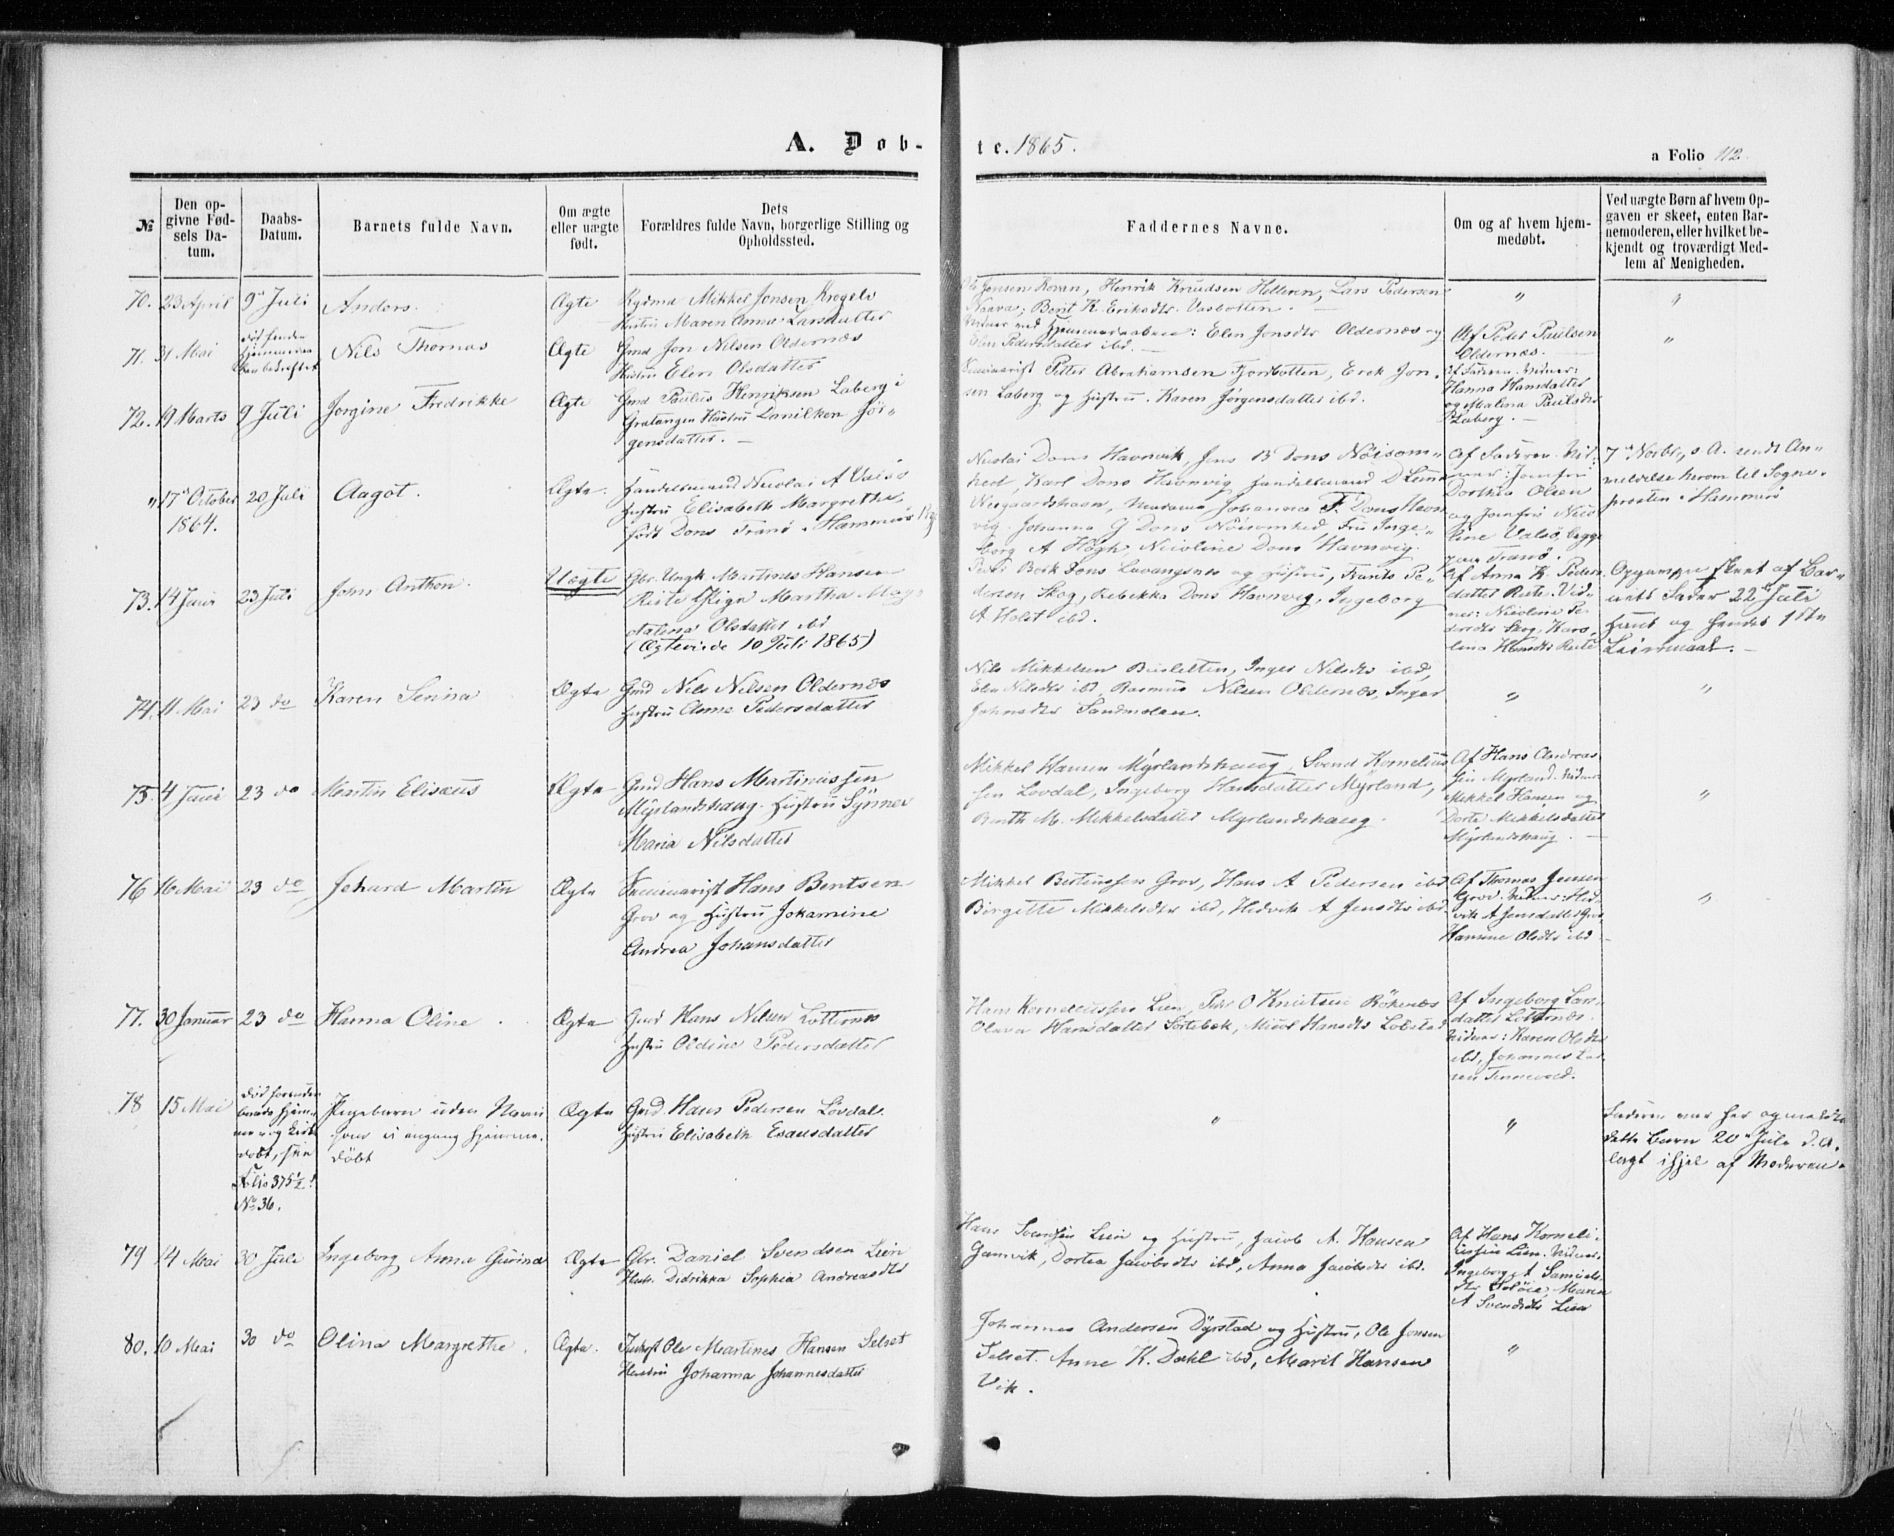 A. Døb-
te. 1865.
a Folio 112.
№
Den op-
givne Fød-
sels Da-
tum.
Daabs-
Datum.
Barnets fulde Navn.
Om ægte
eller uægte
født.
Dets
Forældres fulde Navn, borgerlige Stilling og
Opholdssted.
Faddernes Navne.
Om og af hvem hjem-
medøbt.
Ved uægte Børn af hvem Op-
gaven er skeet, enten Bar-
nemoderen, eller hvilket be-
kjendt og troværdigt Med-
lem af Menigheden.
70. 23 April 9 Juli Anders. Ægte
Mikkel Jonsen
Hustru Maren Anna Larsdatter
Jonsen Henrik Knudsen Helleren, Lars Pedersen
Berit K. Eriksdtr Vasbotten.
" "
71. 31 Mai
Nils Thomas Ægte
Gmd Jon Nilsen Oldernæs
Hustru Elen Olsdatter
Elen Jonsdtr Oldernæs og
Elen Pedersdatter ibd.
Af Peder Paulsen
Oldernæs.
"
72. 19 Marts 9 Juli Jørgine Fredrikke Ægte
Gmd Paulus Henriksen Laberg i
Gratangen Hustru Lanilken Jør-
gensdatter.
Seminarist Petter Abrahamsen Fjordbotten, Erek Jon-
sen Laberg og Hustru. Karen Jørgensdatter ibd.
Af Faderen. Vidner:
Hanna Hansdatter
og Malena Paulsdtr
Laberg.
" 17 October
1864.
20 Juli Aagot. Ægte.
Handelsmand Nicolai A Valsø
Hustru Elisabeth Margrethe
født Dons Tranø i Hammerø
Nicolai Dons Havnvik, Jens B Dons Nöisom-
hed, Karl Dons Havnvig Handelsmand
Madame Johanna F. Dons Havn
vig. Johanna G Dons Nöisomhed, Fru Inge-
borg A Høgh, Nicoline Dons Havnvig.
Af Faderen. Vid-
ner: Jomfru
Dorthea Olsen
og Jomfru Nico
line Valsø begge
Tranø.
7 Novbr, s A. sendt An-
meldelse herom til Sogne-
presten i Hammerø
73. 14 Juni 23 Juli Jøns Anthon. Uægte
Gbr. Ungk Martines Hansen
Reste Pige Martha Mag-
dalena Olsdatter ibd
(Ægteviede 10 Juli 1865)
Berk Dons Levangsnes og Hustru, Frants Pe-
dersen Skog, Rebekka Dons Havnvig, Ingeborg
A Holst ibd.
Af Anna K. Peders
datter Reste. Vid-
ner: Nicoline Pe-
dersdtr Skog, Karo-
lina Hansdtr Reste
Opgaven skeet af Bar-
nets Fader 22 Juli
Hans og hendes 1ste
Leiermaal.
74. 11 Mai 23 do Karen Serina Ægte
Gmd Nils Nilsen Oldernæs
Hustru Anne Pedersdatter
Nils Mikkelsen Inger Nilsdtr ibd,
Elen Nilsdtr ibd, Rasmus Nilsen Oldernæs, Inger
Johnsdtr Sandmolen.
" "
75. 4 Juni 23 do Martin Elisæus Ægte
Gmd Hans Martinussen
Myrlandshaug. Hustru Synnev
Maria Nilsdatter
Mikkel Hansen Myrlandshaug, Svend Kornelius
sen Lovdal, Ingeborg Hansdatter Myrland,
Berith M. Mikkelsdatter Myrlandshaug.
Af Hans Andreas-
sen Myrland. Vidner
Mikkel Hansen og
Dorte Mikkelsdatter
Myrlandshaug.
"
76 16 Mai 23 do Johard Martin Ægte
Seminarist Hans Bentsen
Grov og Hustru Johamine
Andrea Johansdatter
Mikkel Bertinussen Grov, Hans A Pedersen ibd
Birgitte Mikkelsdtr ibd, Hedvik A Jensdtr ibd.
Af Thomas Jensen
Grov. Vidner: Hed-
vik A Jensdatter Grov
Hansine Olsdtr ibd
"
77. 30 Januar 23 do Hanna Oline Ægte
Gmd Hans Nilsen Lotternes
Hustru Oldine Pedersdatter
Hans Korneliussen Lien, Peder O Knutsen Rökenæs
Olava Hansdatter Sortebek, Hansdtr
Af Ingeborg Lars-
datter Lotternæs.
Vidner: Karen Olsdtr
ibd, Johannes Lar-
sen Tennevold.
78 15 Mai
død
døbt, see
Folio 375½
No 36.
Pigebarn uden Navn
som ei engang hjemme-
döbt
Ægte
Gmd. Hans Pedersen Lövdal.
Hustru Elisabeth Esausdatter
" "
Faderen var her og meldte
dette Barn 20 Juli d.A.
lagt ihjel af Moderen.
79 14 Mai 30 Juli Ingeborg Anna Gurina Ægte
Gbr. Daniel Svendsen Lien
Hustr. Didrikka Sophia Andreasdtr
Hans Svendsen Lien og Hustru, Jacob A. Hansen
Gamvik, Dortea Jacobsdtr ibd, Anna Jacobsdtr ibd.
Af Hans Korneli-
ussen Lien. Vidner
Ingeborg A Samuels-
dtr Maren
A Svendsdtr Lien
80. 10 Mai 30 do Olina Margrethe. Ægte.
Ole Martines Hansen Selset
Hustru Johanna Johannesdatter
Johannes Andersen Dyrstad og Hustru, Ole Jonsen
Selset. Anne K. Dahl ibd, Marit Hansen
Vik.
"